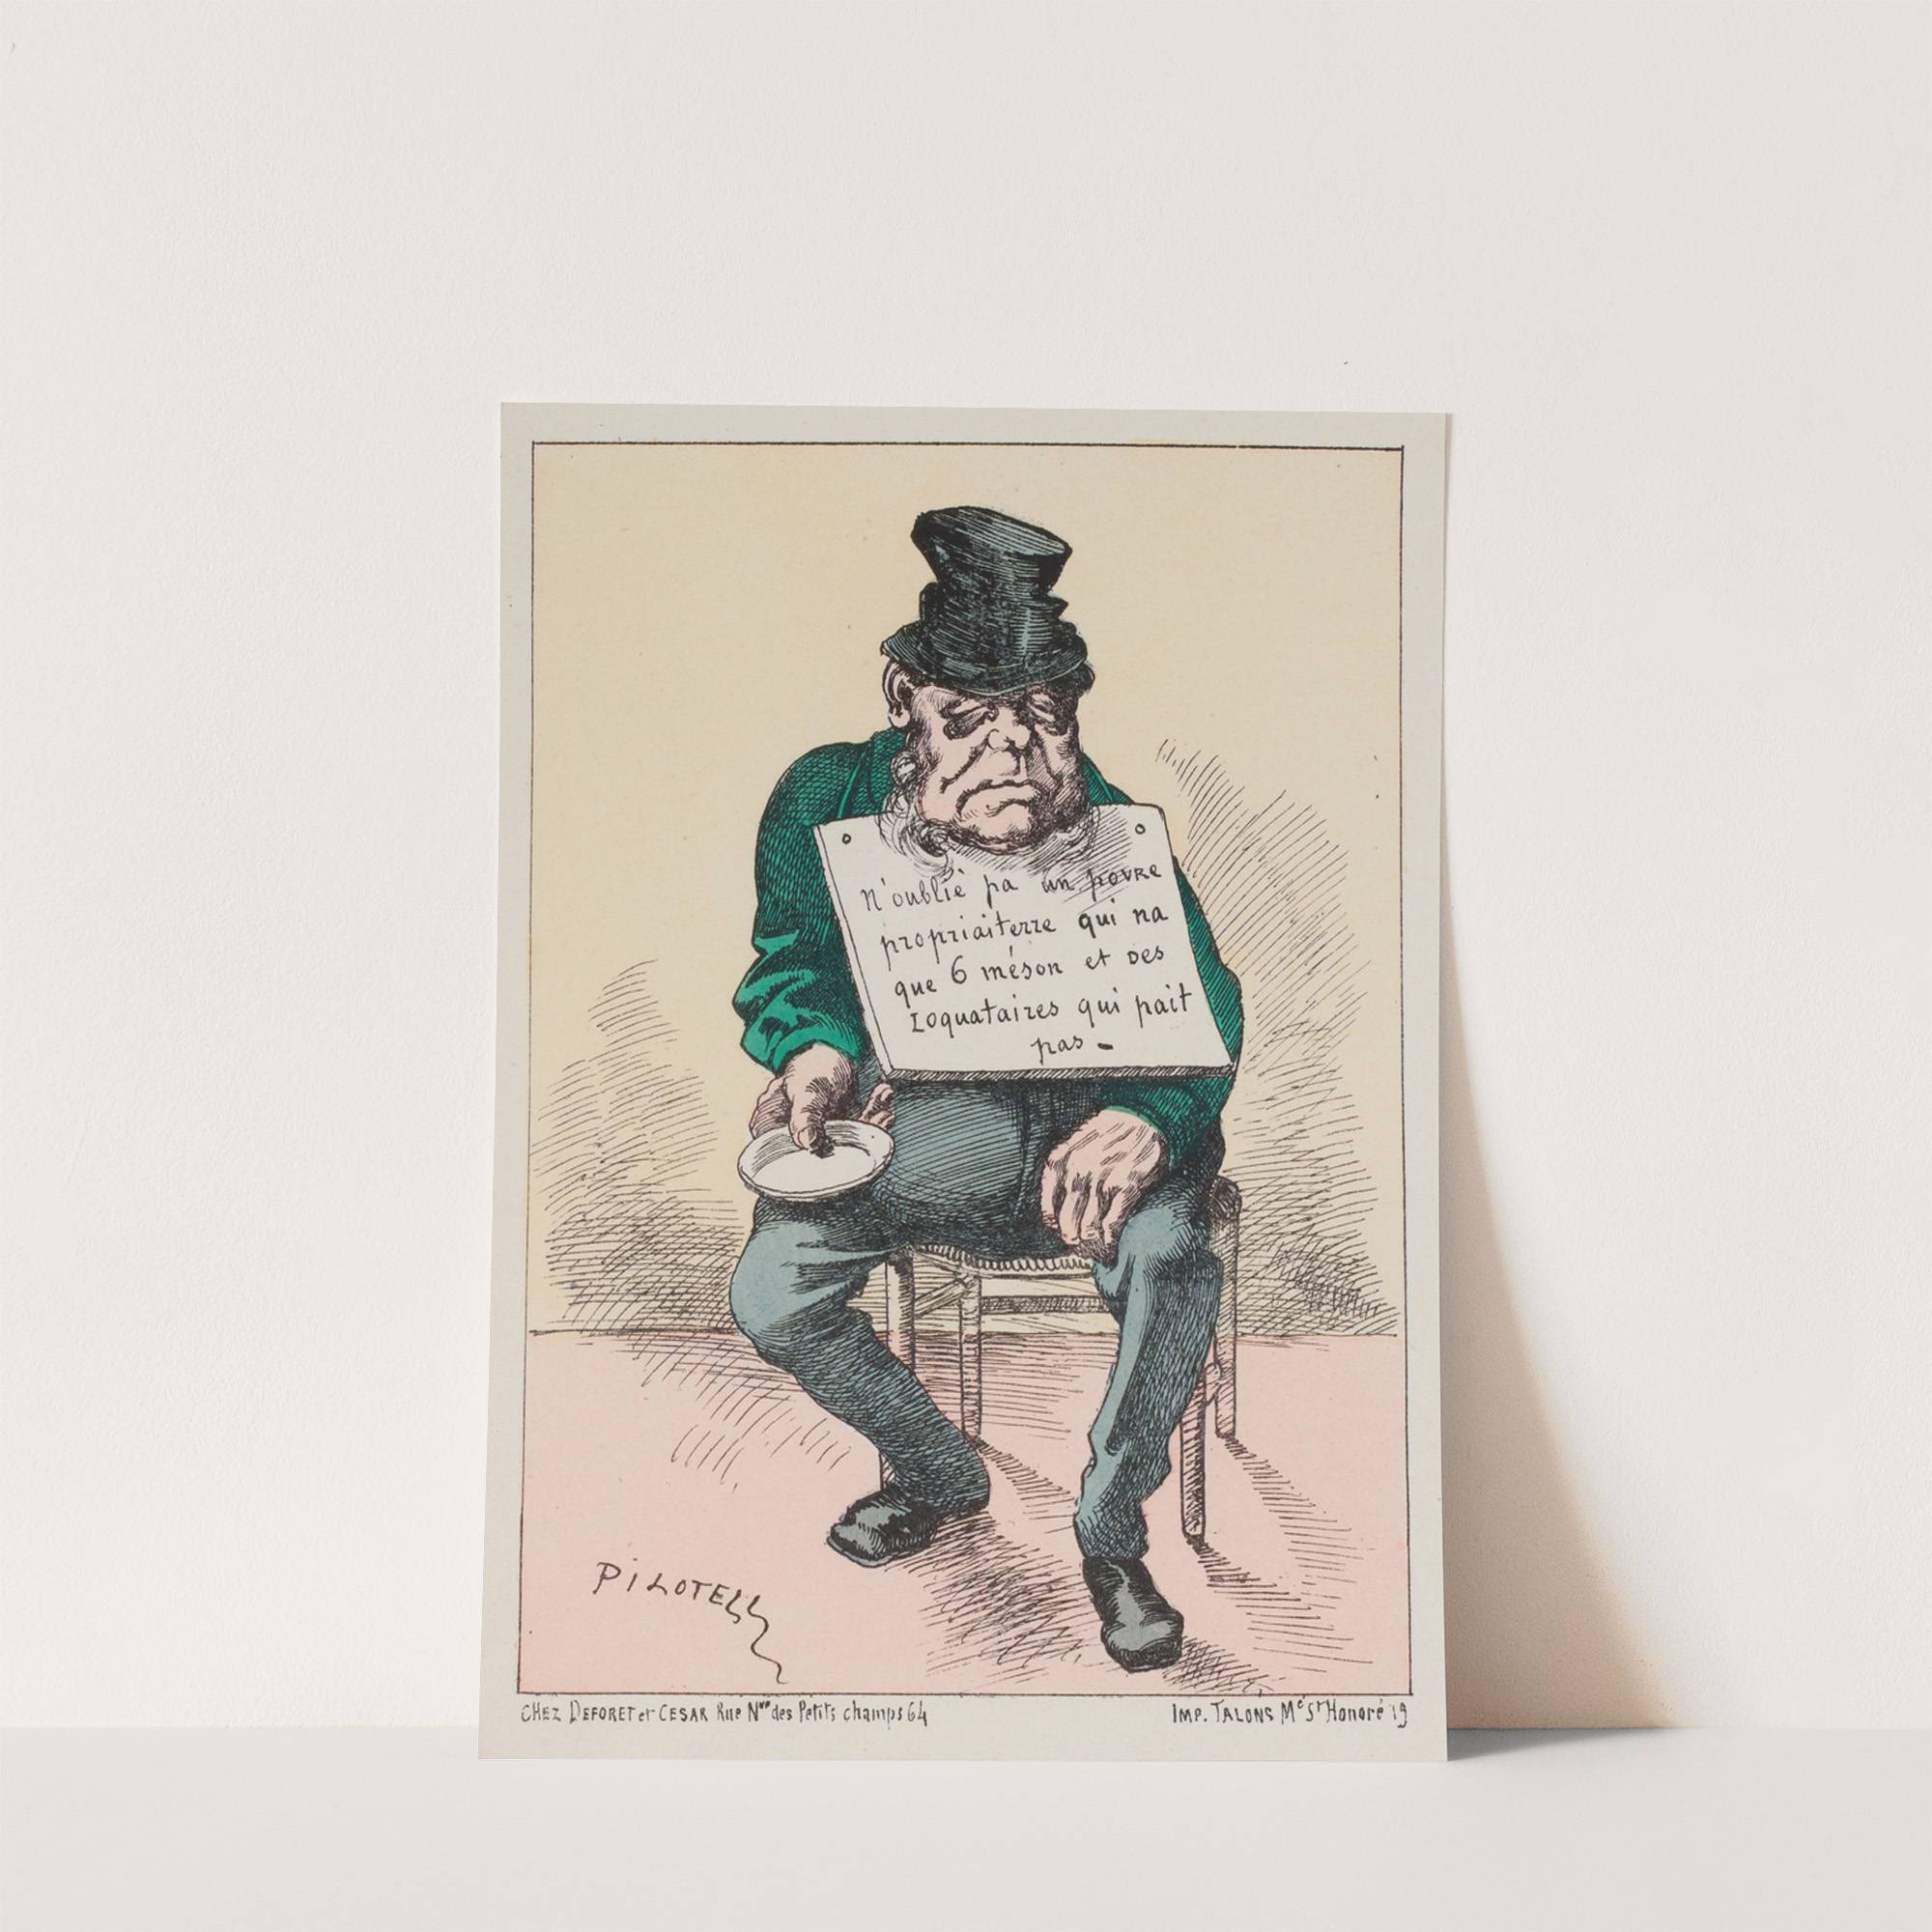 n'oublié pa un povre
propriaiterre qui na
que 6 méson et des
loquataires qui pait
pas -
PILOTELL
CHEZ DEFORET et CESAR Rue Nve des Petits champs 64
IMP. TALONS Mé St Honoré 19